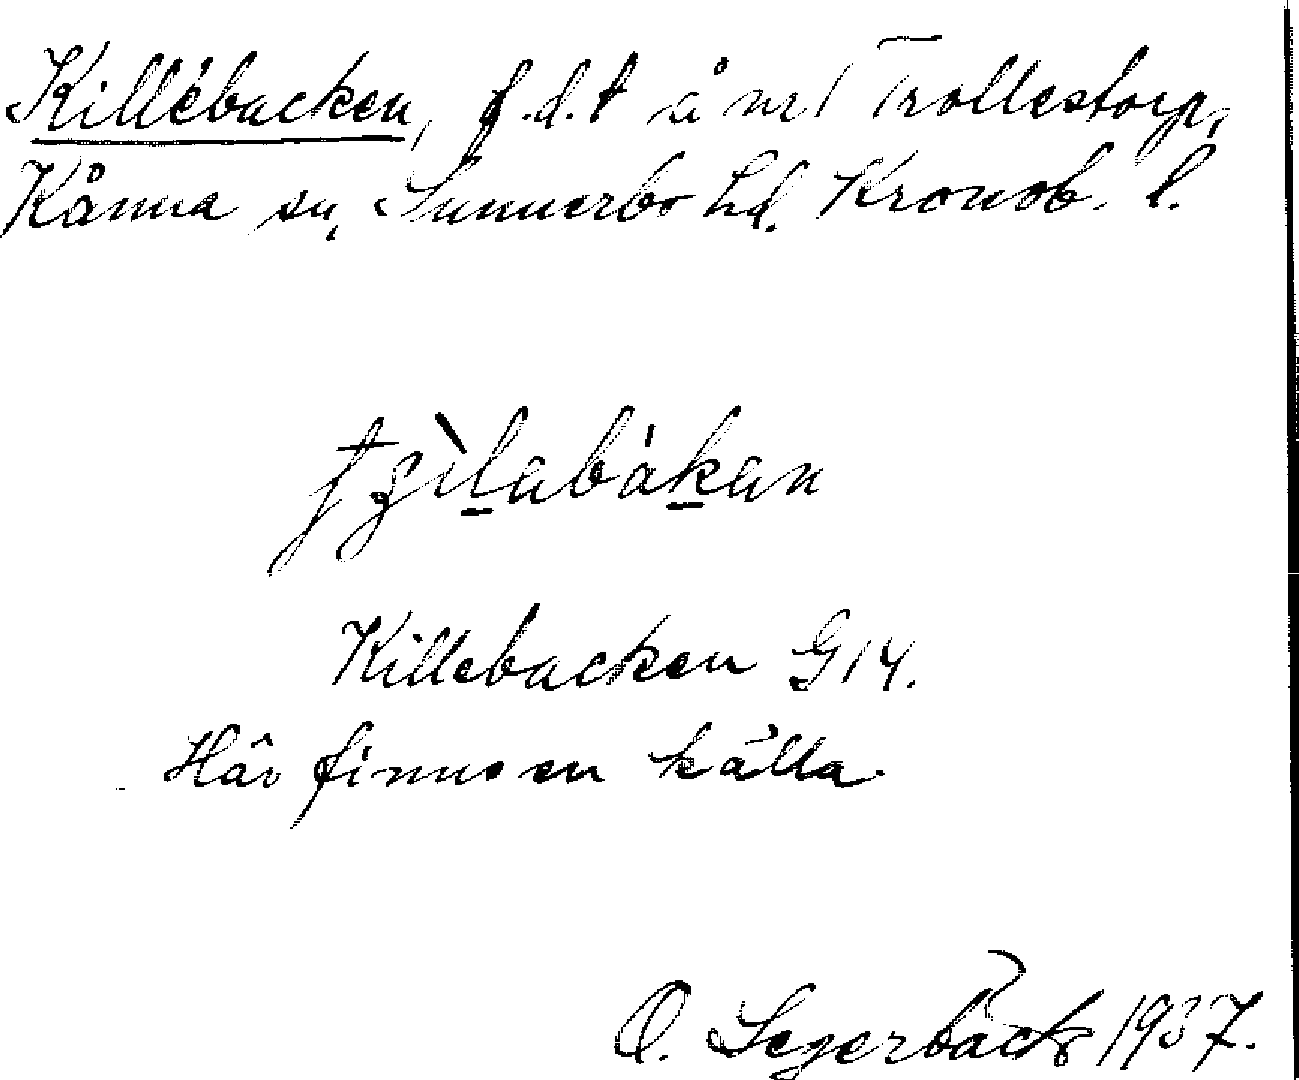 Killebacken, f.d.t å nr 1 Trollestorp,
Kånna sn, Sunnerbo hd. Kronob. l.
Killebacken G 14.
Här finnes en källa.
O. Segerbäck 1937.